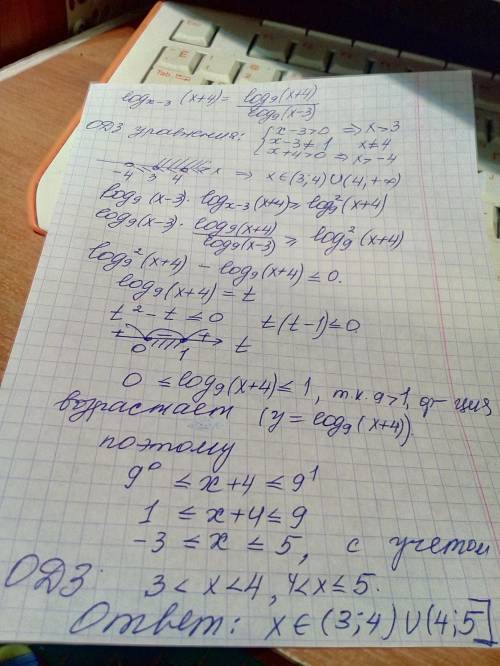 log_{x-3} (x+4) = \frac{log_9(x+4)}{log_9(x-3)}
ОДЗ уравнения: { x-3>0 => x>3
x-3≠1 x≠4
x+4>0 => x>-4
-4 3 4 x => x∈(3;4)∪(4,+∞)
log_9(x-3) · log_{x-3}(x+4) ≥ log_9^2(x+4)
log_9(x-3) · \frac{log_9(x+4)}{log_9(x-3)} ≥ log_9^2(x+4)
log_9^2(x+4) - log_9(x+4) ≤ 0.
log_9(x+4) = t
t^2 - t ≤ 0 t(t-1) ≤ 0
+ 0 1 + t
0 ≤ log_9(x+4) ≤ 1, т.к. 9>1, ф-ция
возрастает (y = log_9(x+4)).
поэтому
9^0 ≤ x+4 ≤ 9^1
1 ≤ x+4 ≤ 9
-3 ≤ x ≤ 5, с учетом
ОДЗ: 3 < x < 4, 4 < x ≤ 5.
Ответ: x ∈ (3;4) ∪ (4;5]